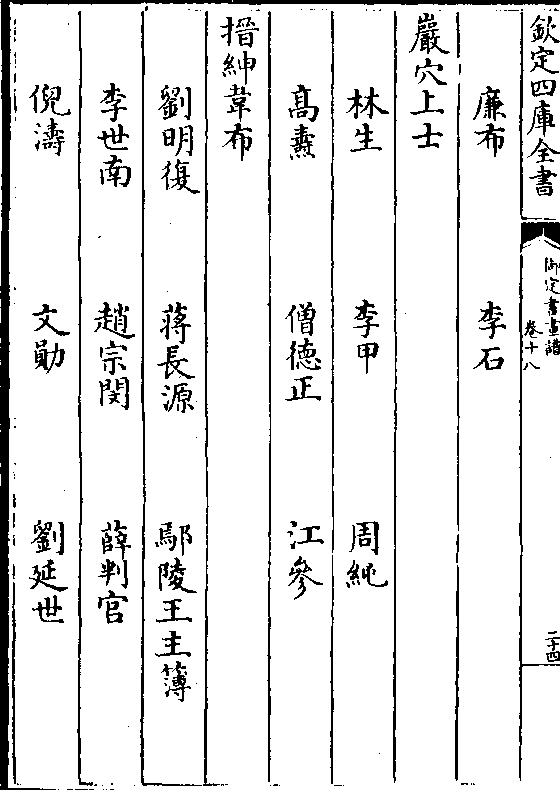 欽定四庫全書
御定書畫譜
卷十八
二十四
廉布 李石
巖穴上士
林生 李甲 周純
高燾 僧德正 江參
搢紳韋布
劉明復 蔣長源 鄢陵王主簿
李世南 趙宗閔 薛判官
倪濤 文勛 劉延世